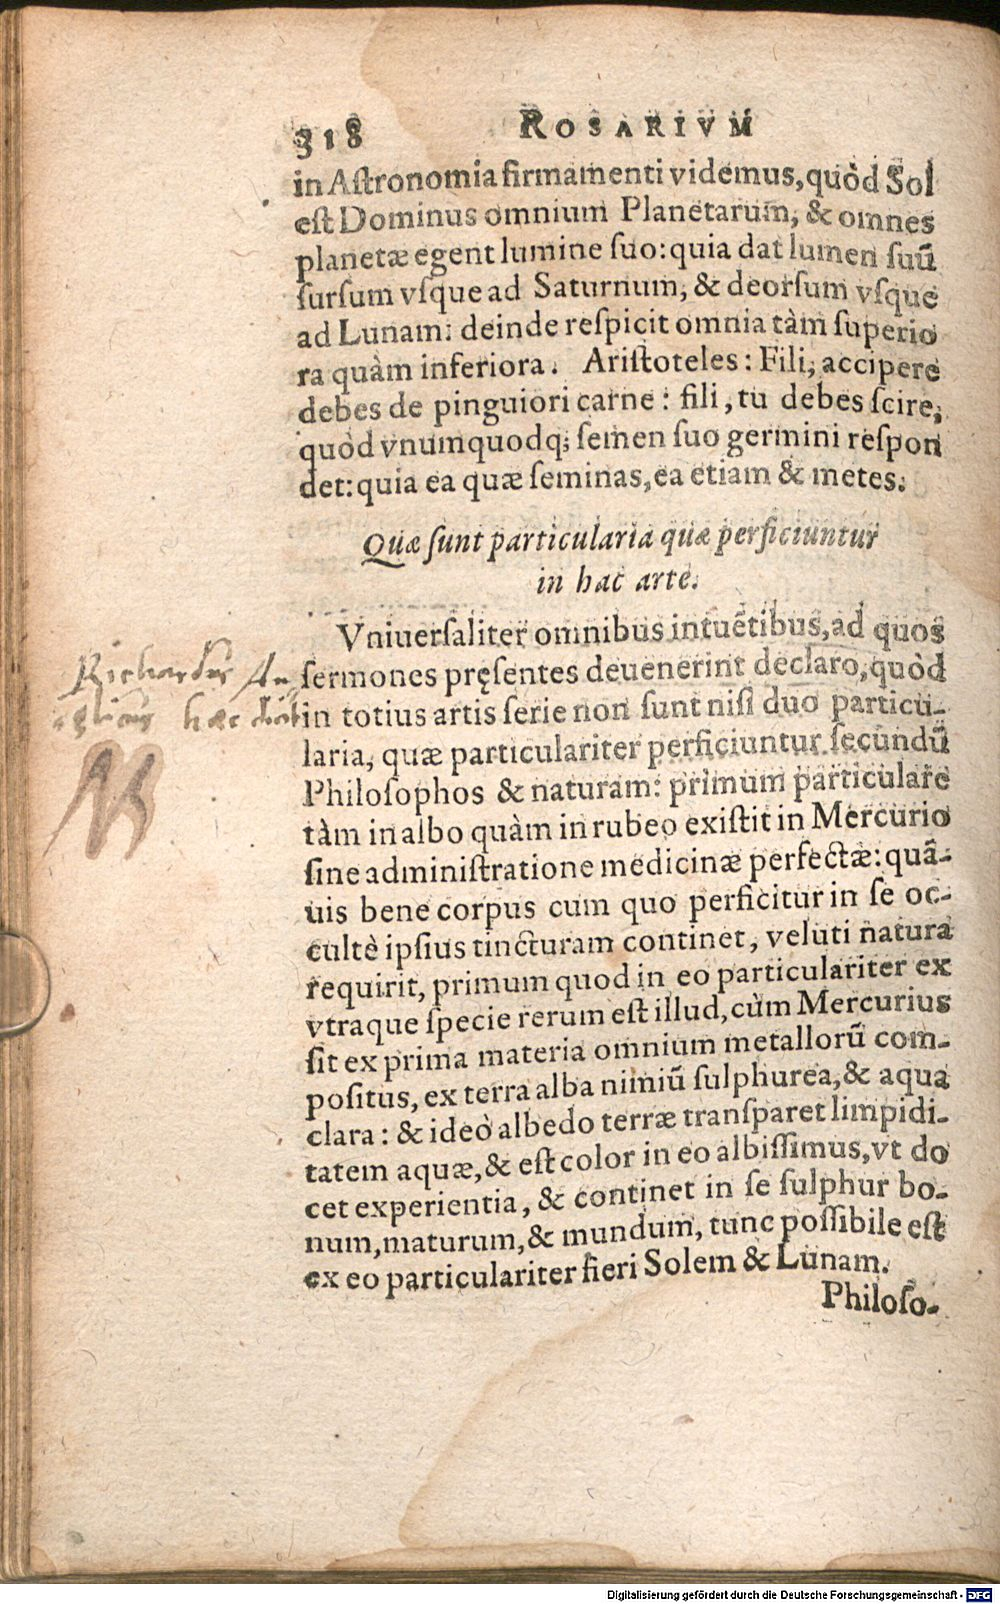 318 ROSARIVM
in Aſtronomia firmamenti videmus, quòd Sol
eſt Dominus omnium Planetarum, & omnes
planetæ egent lumine ſuo: quia dat lumen ſuū
ſurſum vſque ad Saturnum, & deorſum vſque
ad Lunam: deinde reſpicit omnia tàm ſuperio
ra quàm inferiora. Ariſtoteles: Fili, accipere
debes de pinguiori carne: fili, tu debes ſcire,
quòd vnumquodq; ſemen ſuo germini reſpon
det: quia ea quæ ſeminas, ea etiam & metes.
Quæ ſunt particularia quæ perficiuntur
in hac arte.
Vniuerſaliter omnibus intuētibus, ad quos
ſermones pręſentes deuenerint declaro, quòd
in totius artis ſerie non ſunt niſi duo particu-
laria, quæ particulariter perficiuntur ſecundū
Philoſophos & naturam: primum particulare
tàm in albo quàm in rubeo exiſtit in Mercurio
ſine adminiſtratione medicinæ perfectæ: quā-
uis bene corpus cum quo perficitur in ſe oc-
cultè ipſius tincturam continet, veluti natura
requirit, primum quod in eo particulariter ex
vtraque ſpecie rerum eſt illud, cùm Mercurius
ſit ex prima materia omnium metallorū com-
poſitus, ex terra alba nimiū ſulphurea, & aqua
clara: & ideò albedo terræ tranſparet limpidi-
tatem aquæ, & eſt color in eo albiſſimus, vt do
cet experientia, & continet in ſe ſulphur bo-
num, maturum, & mundum, tunc poſſibile eſt
ex eo particulariter fieri Solem & Lunam.
Philoſo-
Richardus An
glicus hæc dicit
Digitalisierung gefördert durch die Deutsche Forschungsgemeinschaft - DFG